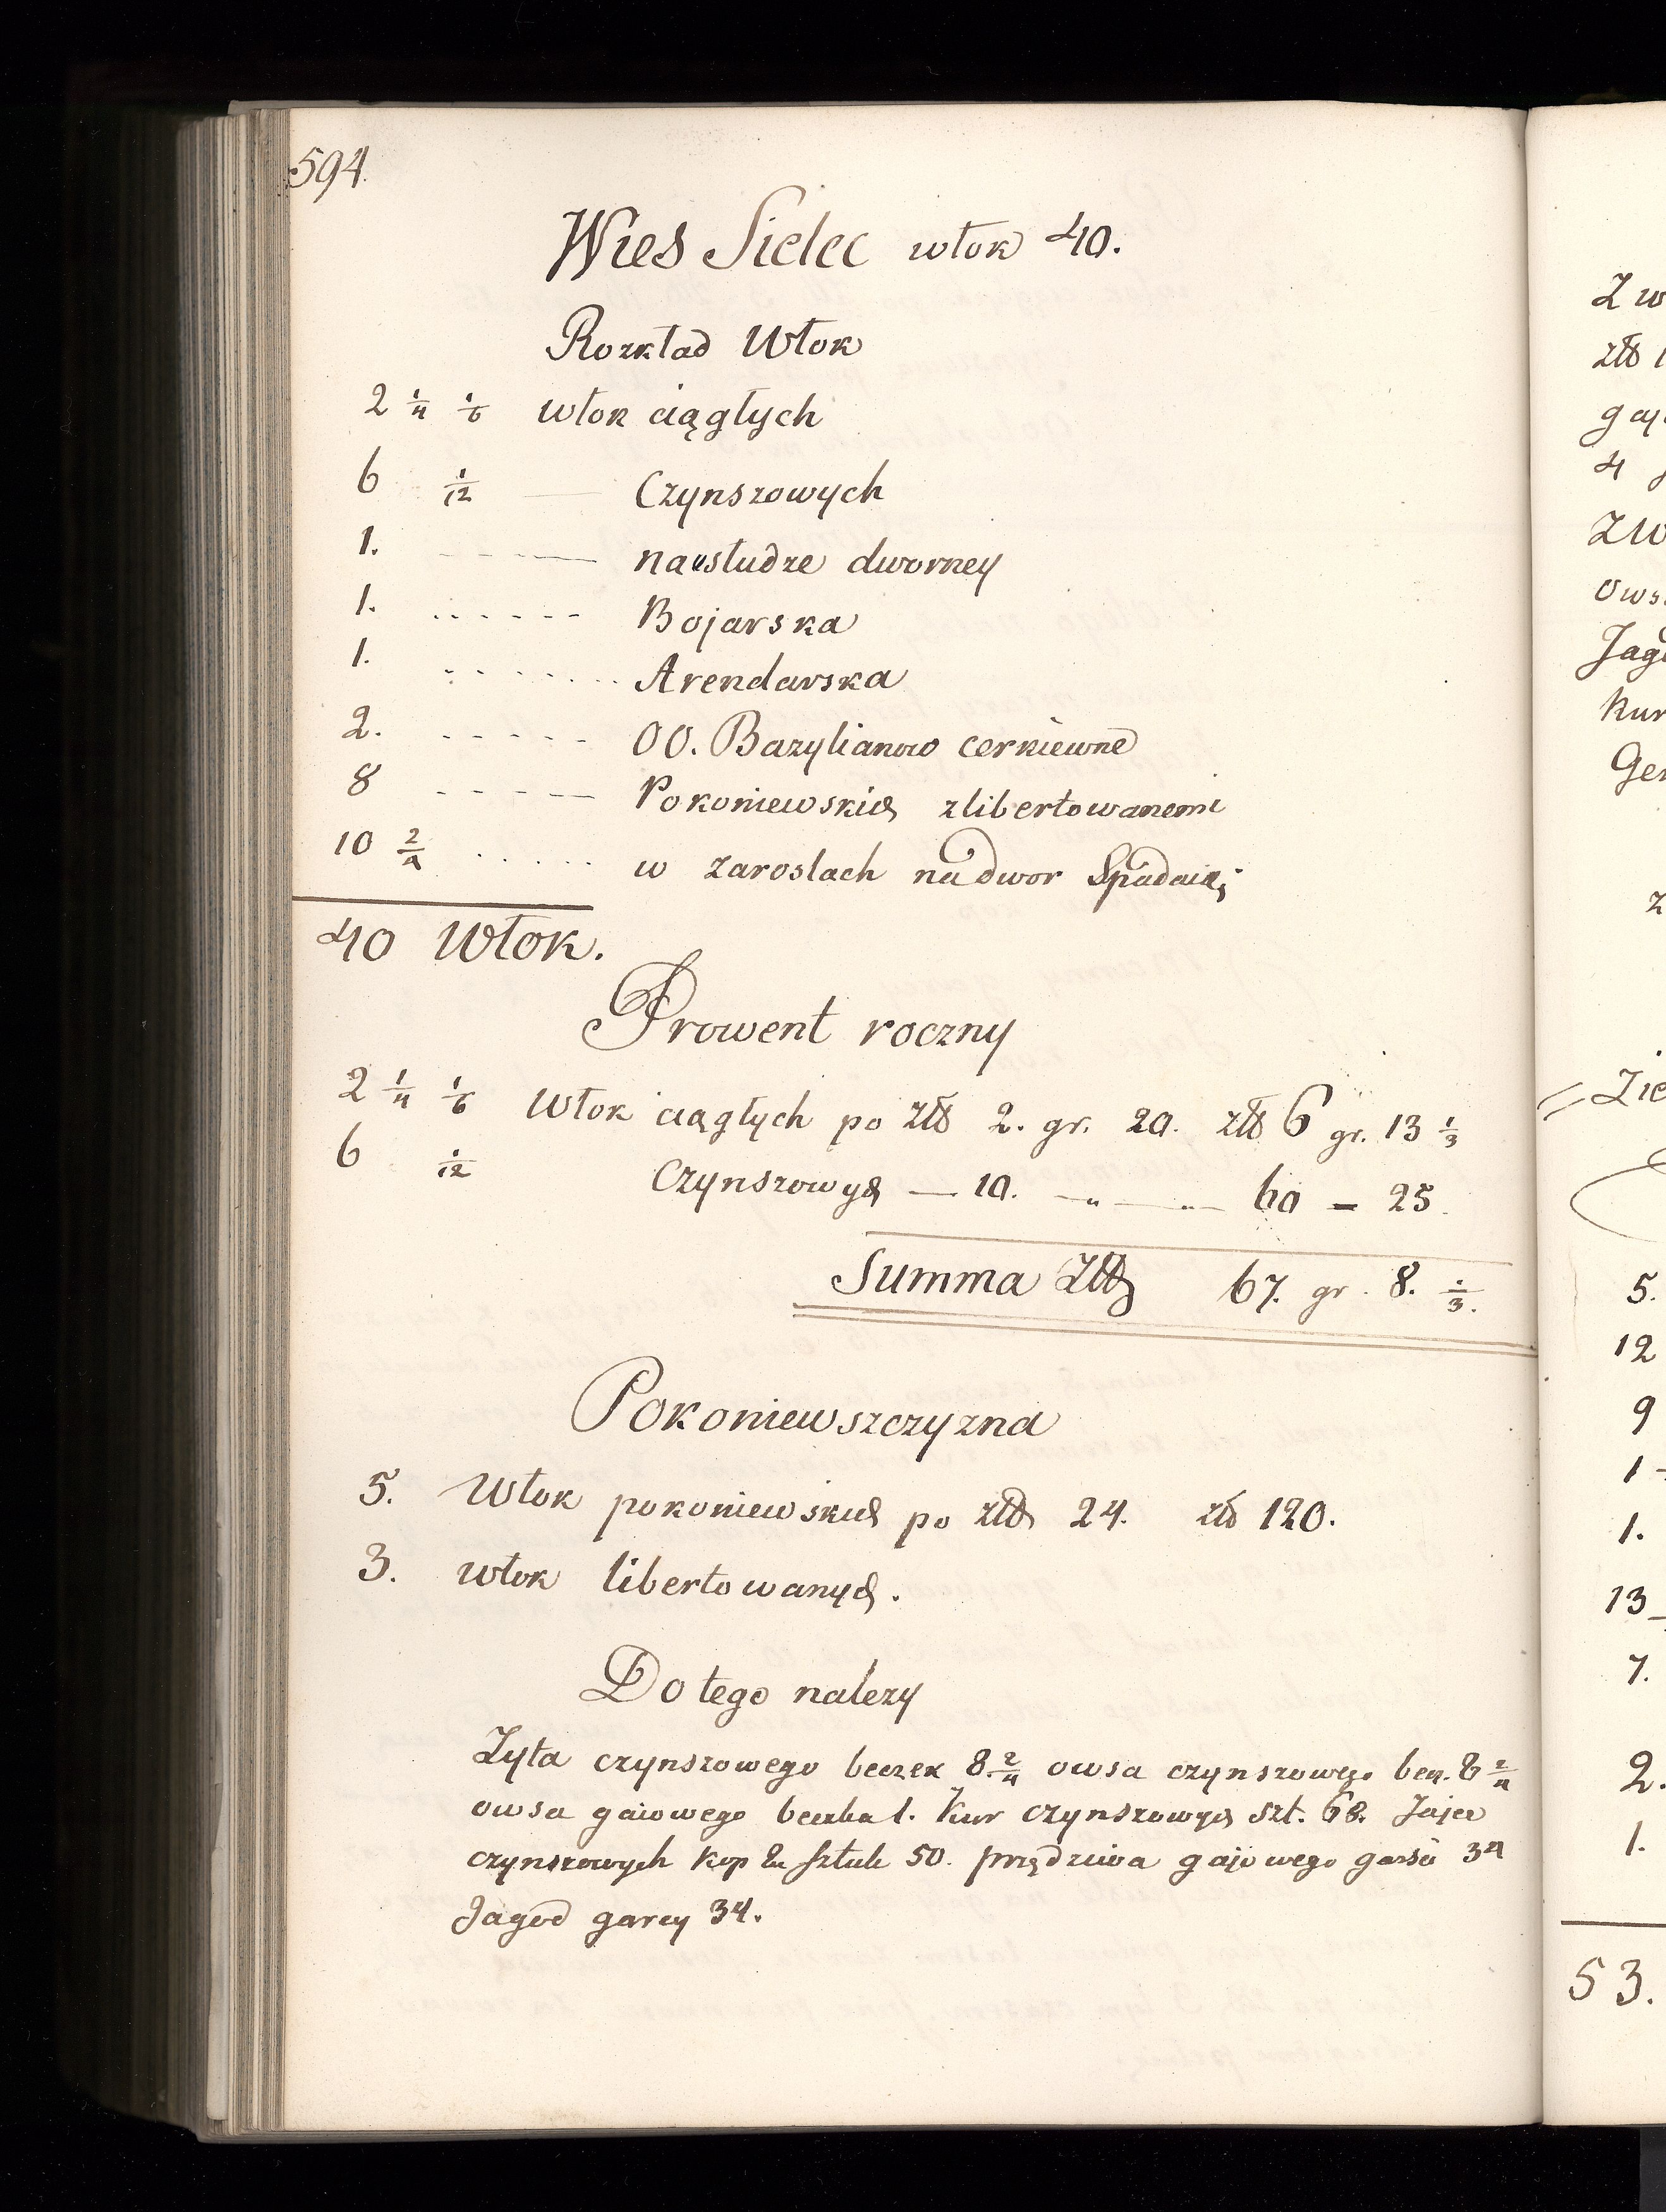 594.
Wies Sielec włok 40.
Rozkład Włok
2 1/4 1/6 włok ciągłych
6 1/12 — Czynszowych
1. - - - — na usłudze dworney
1. . . . - - - Bojarska
1. - . - . . . . Arendarska
2. - - - - - OO. Bazylianow cerkiewne
8 - - - - — Pokoniewskich zlibertowanemi
10 2/4 . . . . . w zaroslach na dwor
40 Włok.
Prowent roczny
2 1/4 1/6 Włok ciągłych po złł 2. gr. 20. złł 6 gr. 13 1/3
6 1/12 Czynszowych — 10. — „ — „ — 60 = 25.
Summa Złł 67. gr. 8. 1/3.
Pokoniewszczyzna
5. Włok pokoniewskich po złł 24. zł 120.
3. włok libertowanych.
Do tego nalezy
Zyta czynszowego beczek 8. 2/4 owsa czynszowego becz. 8 2/4
owsa gaiowego beczka 1. Kur czynszowych szt. 68. Jajec
czynszowych kop 2 sztuk 50. przędziwa gajowego garsci 34
Jagod garcy 34.
Z w
złł 1
gaj
4
ZW
Ows
Jago
Kur
Ger
z
= Zie
5.
12
9
1 -
1.
13
7.
2.
1.
53.